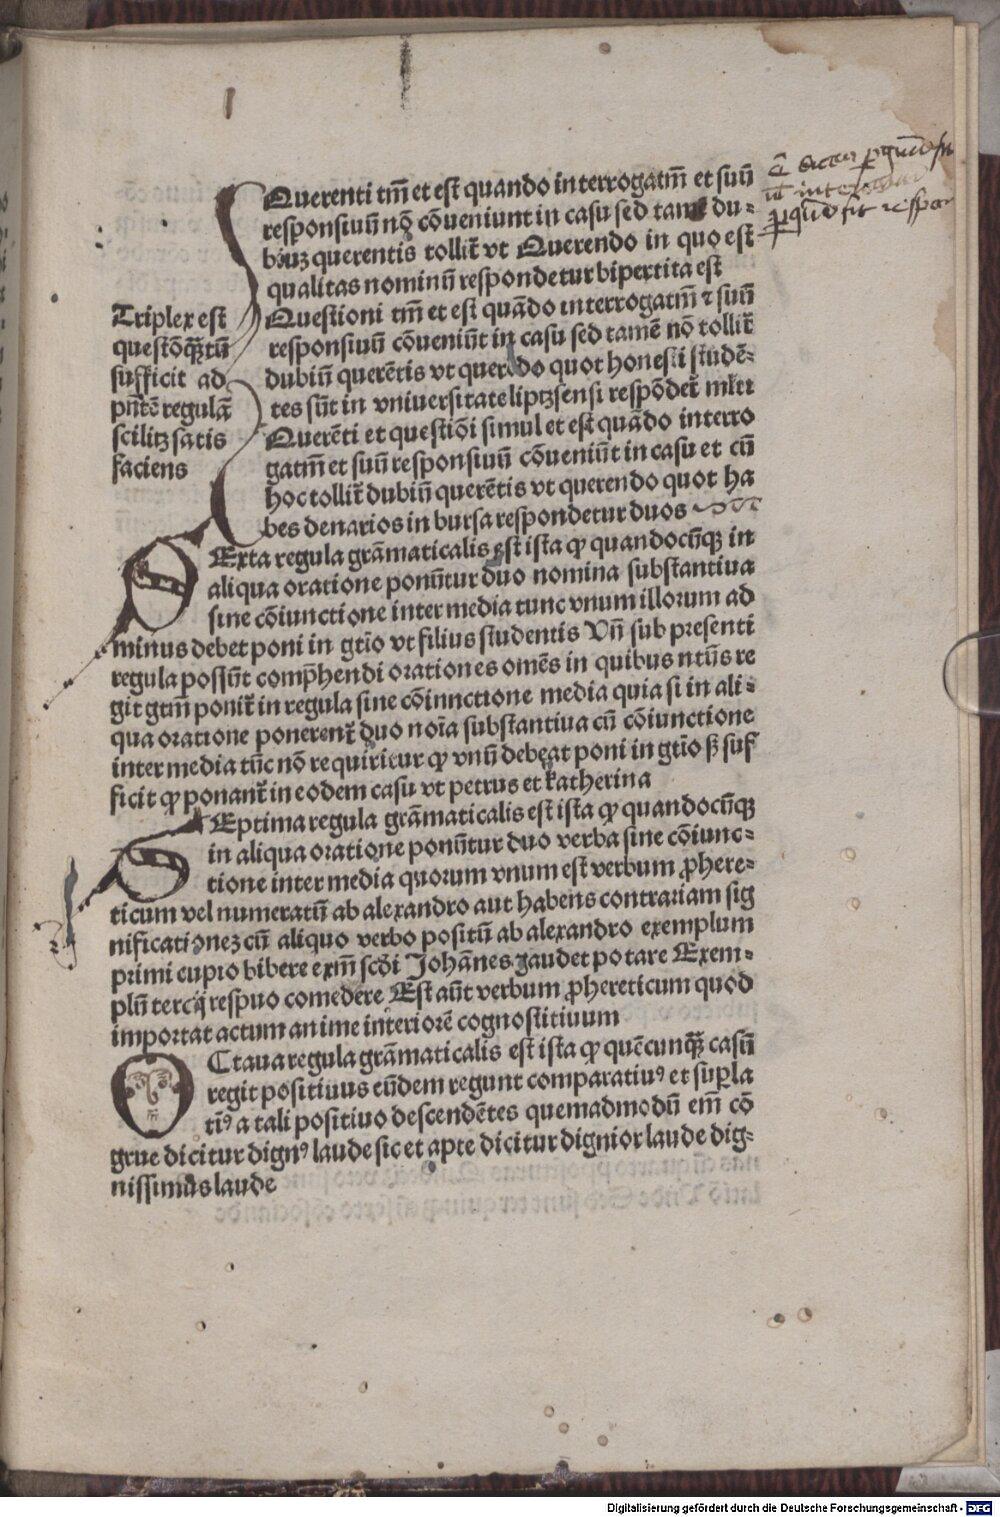 Triplex est
questōꝗ̄tū
sufficit ad
pn̄tē regulā
scilitꝫ satis
faciens
Querenti tm̄ et est quando interrogatm̄ et suū
responsiuū nō cōueniunt in casu sed tamē du⸗
biuꝫ querentis tollit̄ vt Querendo in quo est
qualitas nominū respondetur bipertita est
Questioni tm̄ et est quādo interrogatm̄ ⁊ suū
responsiuū cōueniūt in casu sed tamē nō tollit̄
dubiū querētis vt querēdo quot honesti studē⸗
tes sūt in vniuersitate liptzsensi respōdet̄ mlti
Querēti et questiōi simul et est quādo interro
gatm̄ et suū responsiuū cōueniūt in casu et cū
hoc tollit̄ dubiū querētis vt querendo quot ha
bes denarios in bursa respondetur duos
SExta regula grāmaticalis est ista ꝙ quandocūꝗ in
aliqua oratione ponūtur duo nomina substantiua
sine cōiunctione intermedia tunc vnum illorum ad
minus debet poni in gtīo vt filius studentis Vn̄ sub presenti
regula possūt comp̄hendi orationes omēs in quibus ntūs re
git gtm̄ ponit̄ in regula sine cōinnctione media quia si in ali⸗
qua oratione ponerent̄ duo noīa substantiua cū cōiunctione
intermedia tūc nō requiritur ꝙ vnū debeat poni in gtīo sꝫ suf
ficit ꝙ ponant̄ in eodem casu vt petrus et katherina
SEptima regula grāmaticalis est ista ꝙ quandocūꝗ
in aliqua oratione ponūtur duo verba sine cōiunc⸗
tione intermedia quorum vnum est verbum ꝓhere⸗
ticum vel numeratū ab alexandro aut habens contrariam sig
nificationeꝫ cū aliquo verbo positū ab alexandro exemplum
primi cupio bibere exm̄ scdi Johānes gaudet potare Exem⸗
plū tercij respuo comedere Est aūt verbum ꝓhereticum quod
importat actum anime interiorē cognostitiuum
OCtaua regula grāmaticalis est ista ꝙ quēcunꝗ casū
regit positiuus eūdem regunt comparatiu⁹ et suꝑla
ti⁹ a tali positiuo descendētes quemadmodū em̄ cō
grue dicitur dign⁹ laude sic et apte dicitur dignior laude dig⸗
nissimus laude
Digitalisierung gefördert durch die Deutsche Forschungsgemeinschaft - DFG